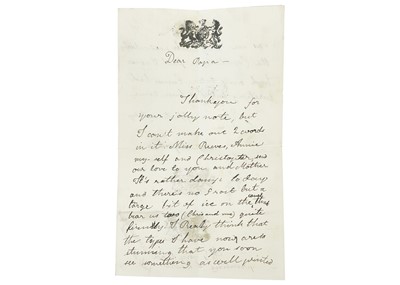 Dear Papa —
Thankyou for
your jolly note, but
I can't make out 2 words
in it Miss Reeves, Annie
my self and Christopher, send
our love to you and Mother
It's rather damp to day
and there's no frost but a
large bit of ice on the
bear us (Chris and me) quite
firmly I Realy think that
the type I have now are
stunning that you soon
see something as well printed